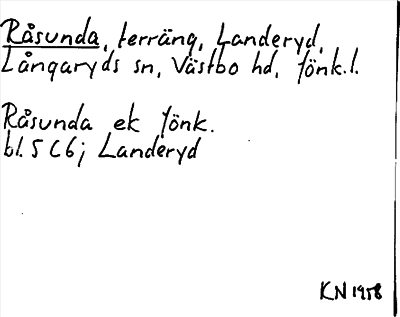 Råsunda, terräng, Landeryd,
Långaryds sn, Västbo hd, Jönk.l.
Råsunda ek Jönk.
bl. 5 C 6 j Landeryd
KN 1958